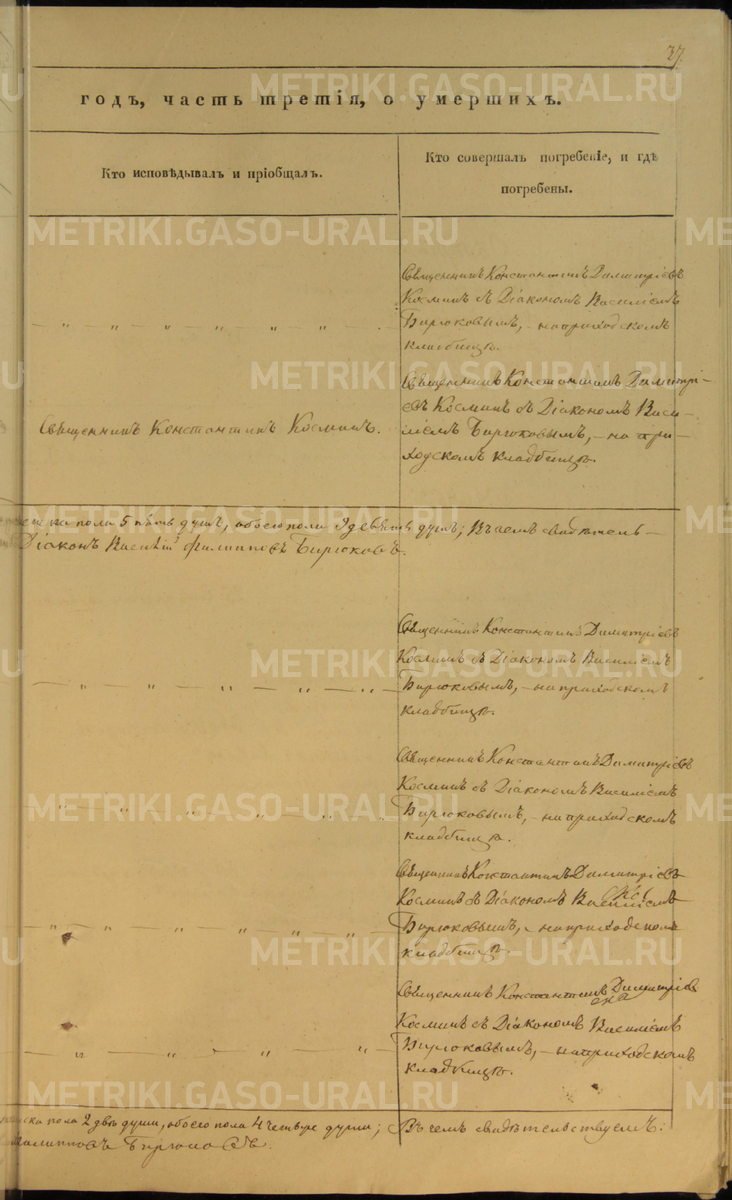 37.
METRIKI.GASO-URAL.RU
годъ, часть третія, о умершихъ.
Кто исповѣдывалъ и пріобщалъ.
Кто совершалъ погребеніе, и гдѣ
погребены.
METRIKI.GASO-URAL.RU
Священникъ Константинъ Димитріевъ
Косминъ съ Діакономъ Василіемъ
Бирюковымъ, – на приходскомъ
кладбищѣ.
METRIKI.GASO-URAL.RU
Священникъ Константинъ Косминъ.
Священникъ Константинъ Димитрі-
евъ Косминъ съ Діакономъ Васи-
ліемъ Бирюковымъ, – на при-
ходскомъ кладбищѣ.
METRIKI.GASO-URAL.RU
пола 5 пять душъ, обоего пола 9 девять душъ; Въ чемъ свидѣтель –
Діаконъ Василій Филипповъ Бирюковъ.
Священникъ Константинъ Димитріевъ
Косминъ съ Діакономъ Василіемъ
Бирюковымъ, – на приходскомъ
кладбищѣ.
METRIKI.GASO-URAL.RU
Священникъ Константинъ Димитріевъ
Косминъ съ Діакономъ Василіемъ
Бирюковымъ, – на приходскомъ
кладбищѣ.
METRIKI.GASO-URAL.RU
Священникъ Константинъ Димитріевъ
Косминъ съ Діакономъ Василіемъ
Бирюковымъ, – на приходскомъ
кладбищѣ.
METRIKI.GASO-URAL.RU
Священникъ Константинъ Димитріевъ
Косминъ съ Діакономъ Василіемъ
Бирюковымъ, – на приходскомъ
кладбищѣ.
METRIKI.GASO-URAL.RU
пола 2 двѣ души, обоего пола 4 четыре души; Въ чемъ свидѣтельствуемъ:
Филипповъ Бирюковъ.